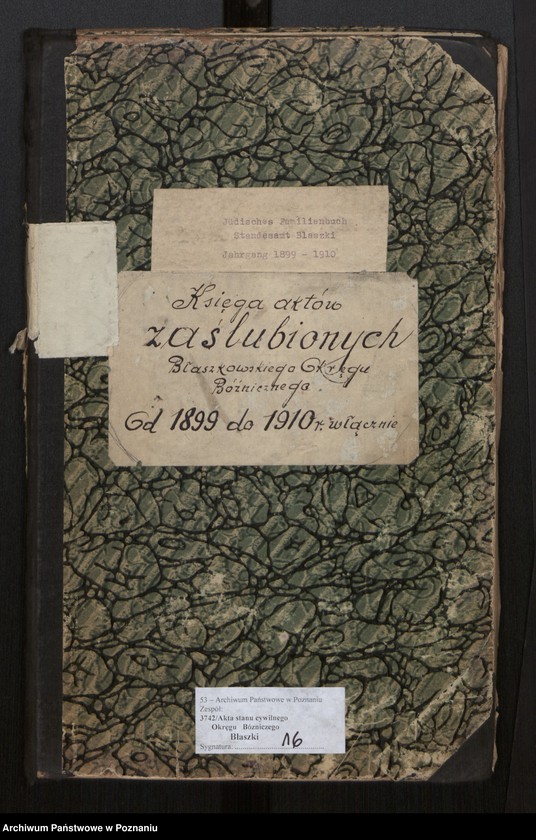 Jüdisches Familienbuch
Standesamt Blaszki
Jahrgang 1899 - 1910
Księga aktów
zaślubionych
Błaszkowskiego Okręgu
Bóżnicznego.
Od 1899 do 1910 r. włącznie
53 – Archiwum Państwowe w Poznaniu
Zespół:
3742/Akta stanu cywilnego
Okręgu Bóżniczego
Błaszki
Sygnatura: 16
Archiwum Państwowe w Poznaniu
Archiwum Państwowe w Poznaniu